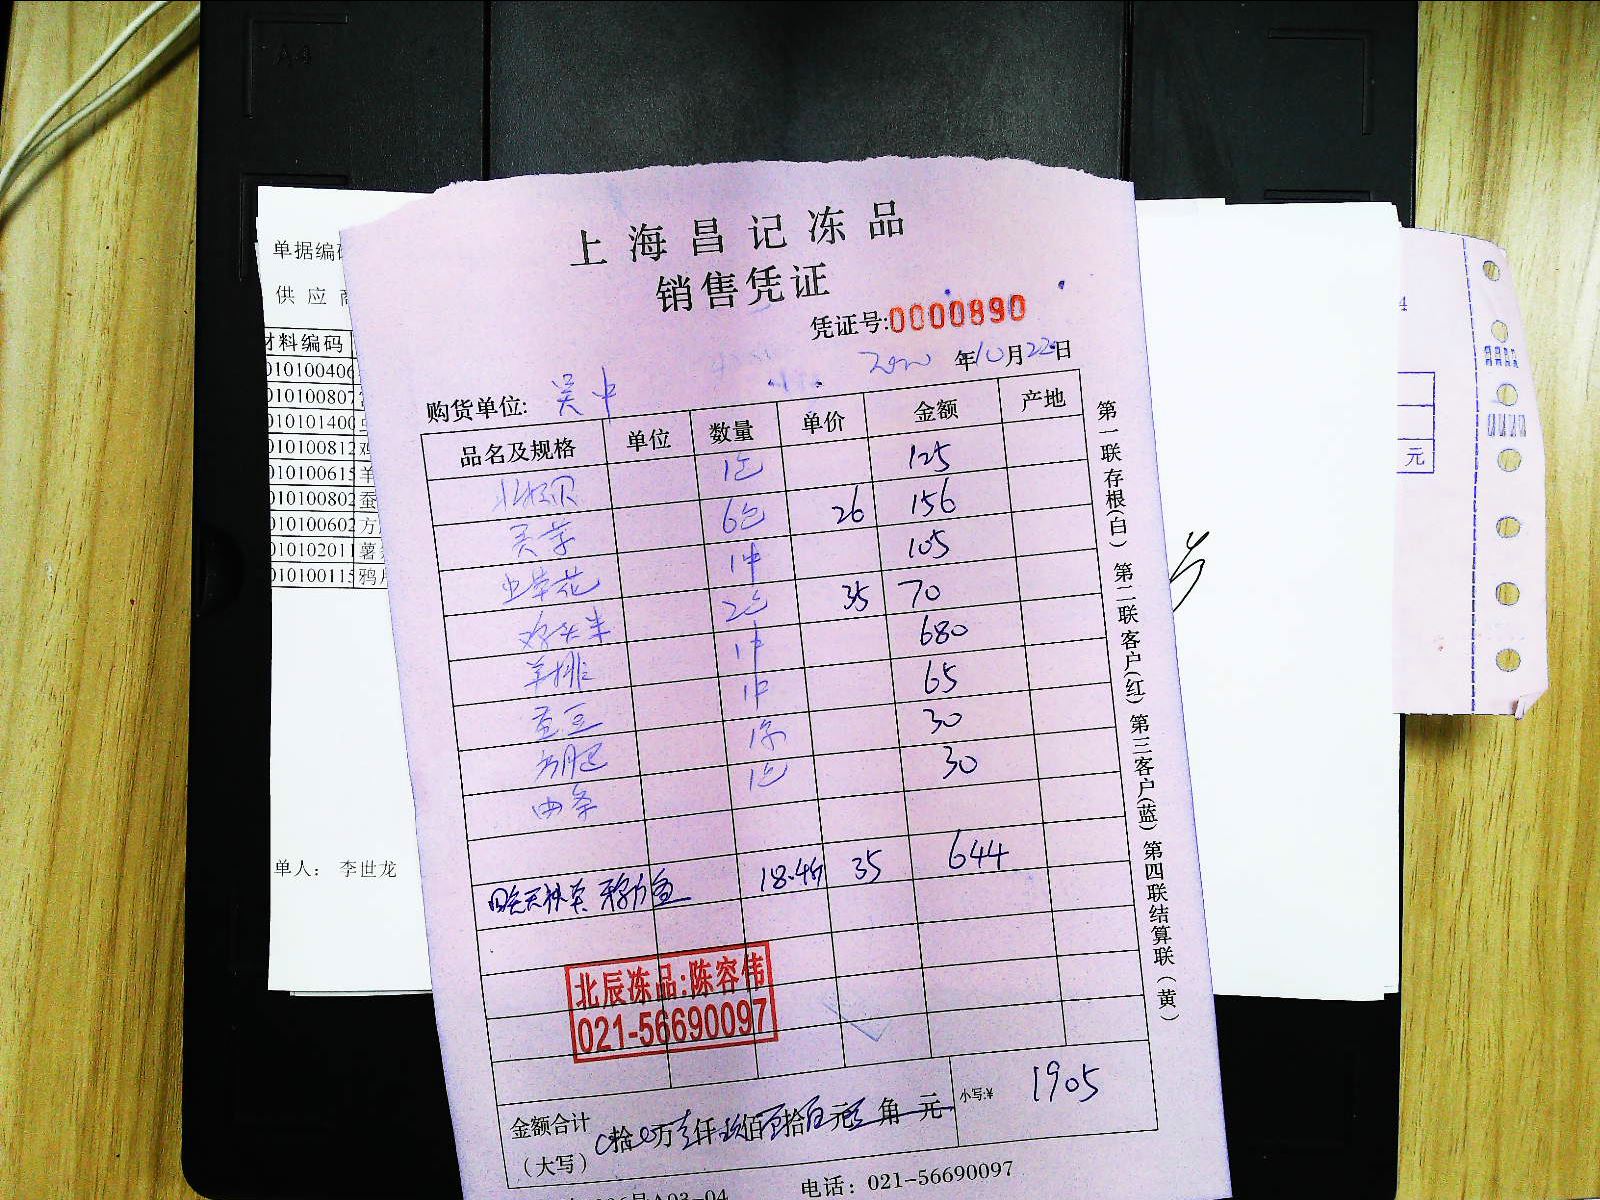 A4
上海昌记冻品
销售凭证
凭证号:0000890
2020年10月22日
购货单位: 吴中
品名及规格 单位 数量 单价 金额 产地
北极贝 1包 125
6包 26 156
虫草花 1件 105
鸡头米 2包 35 70
羊排 1件 680
蚕豆 1件 65
方腿 1条 30
薯条 1包 30
昨天补 18.4斤 35 644
北辰冻品:陈容伟
021-56690097
金额合计
(大写) 拾 万 仟 佰 拾 元 角 元
小写:¥ 1905
A03-04
电话：021-56690097
第一联存根(白) 第二联客户(红) 第三客户(蓝) 第四联结算联(黄)
单据编
供应
材料编码
010100406
010100807
010101400
010100812 鸡
010100615 羊
010100802 蚕
010100602 方
010102011 薯
010100115 鸦
单人： 李世龙
4
元